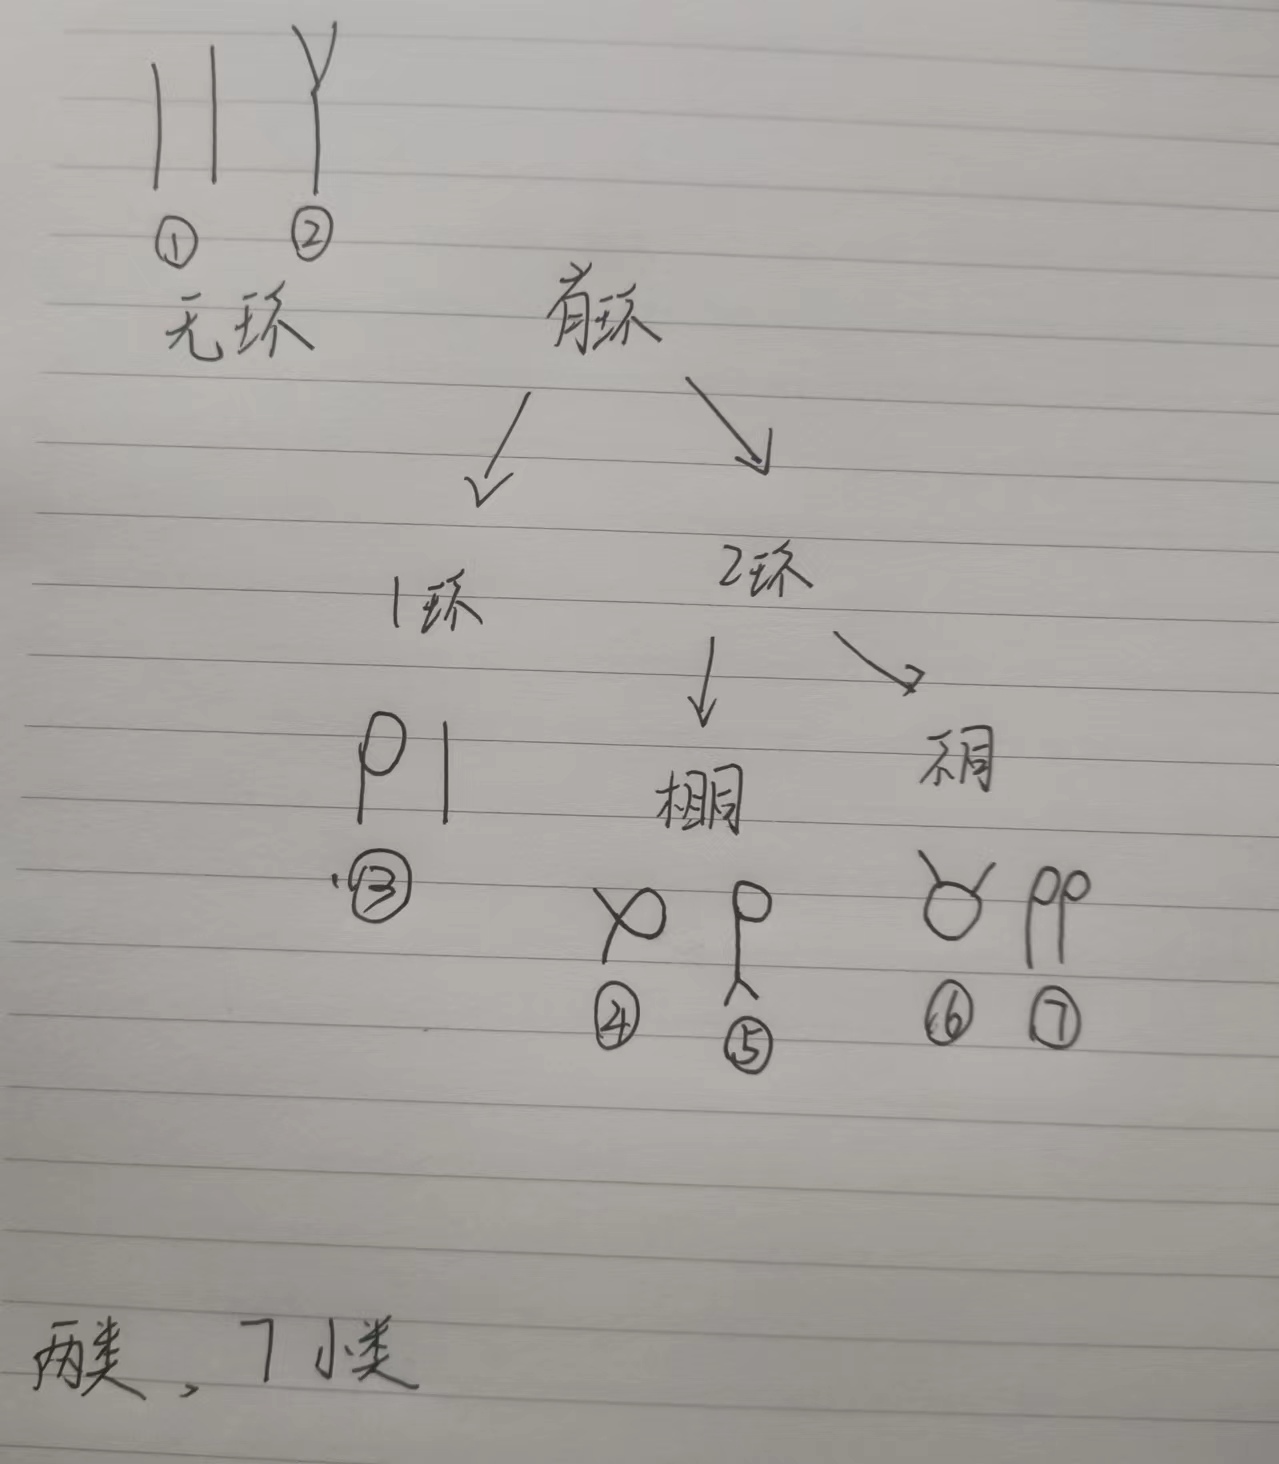 ① ②
无环 有环
1环 2环
相同 不同
③
④ ⑤ ⑥ ⑦
两类、7小类